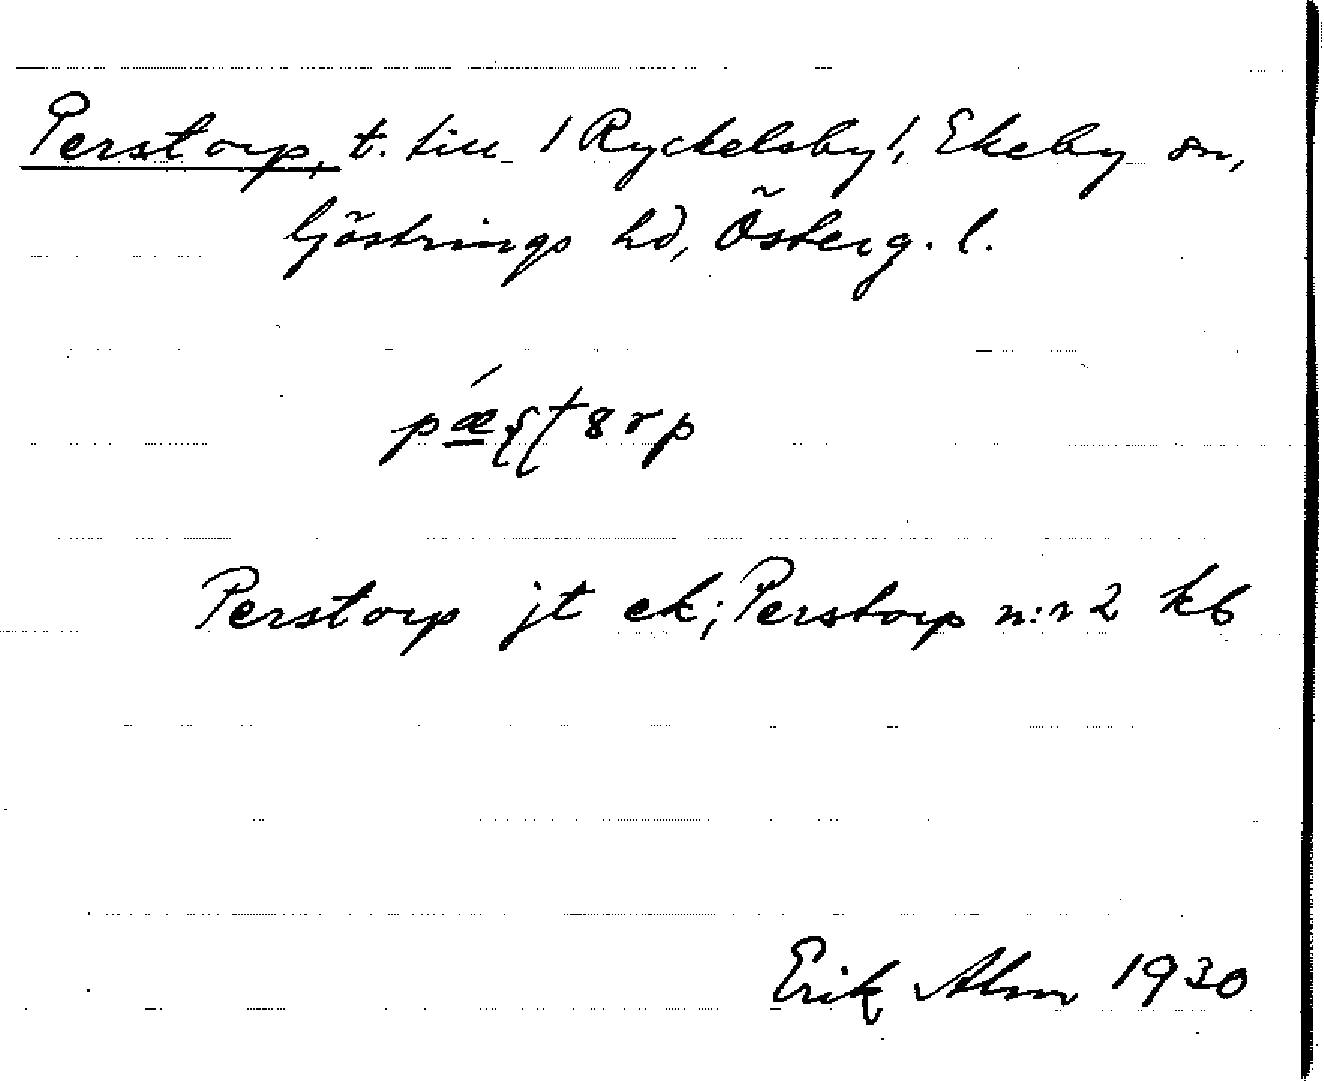 Perstorp, t. till /Ryckelsby/, Ekeby sn,
Göstrings hd, Österg. l.
Perstorp jt ek; Perstorp n:r 2 kb
Erik Alm 1930